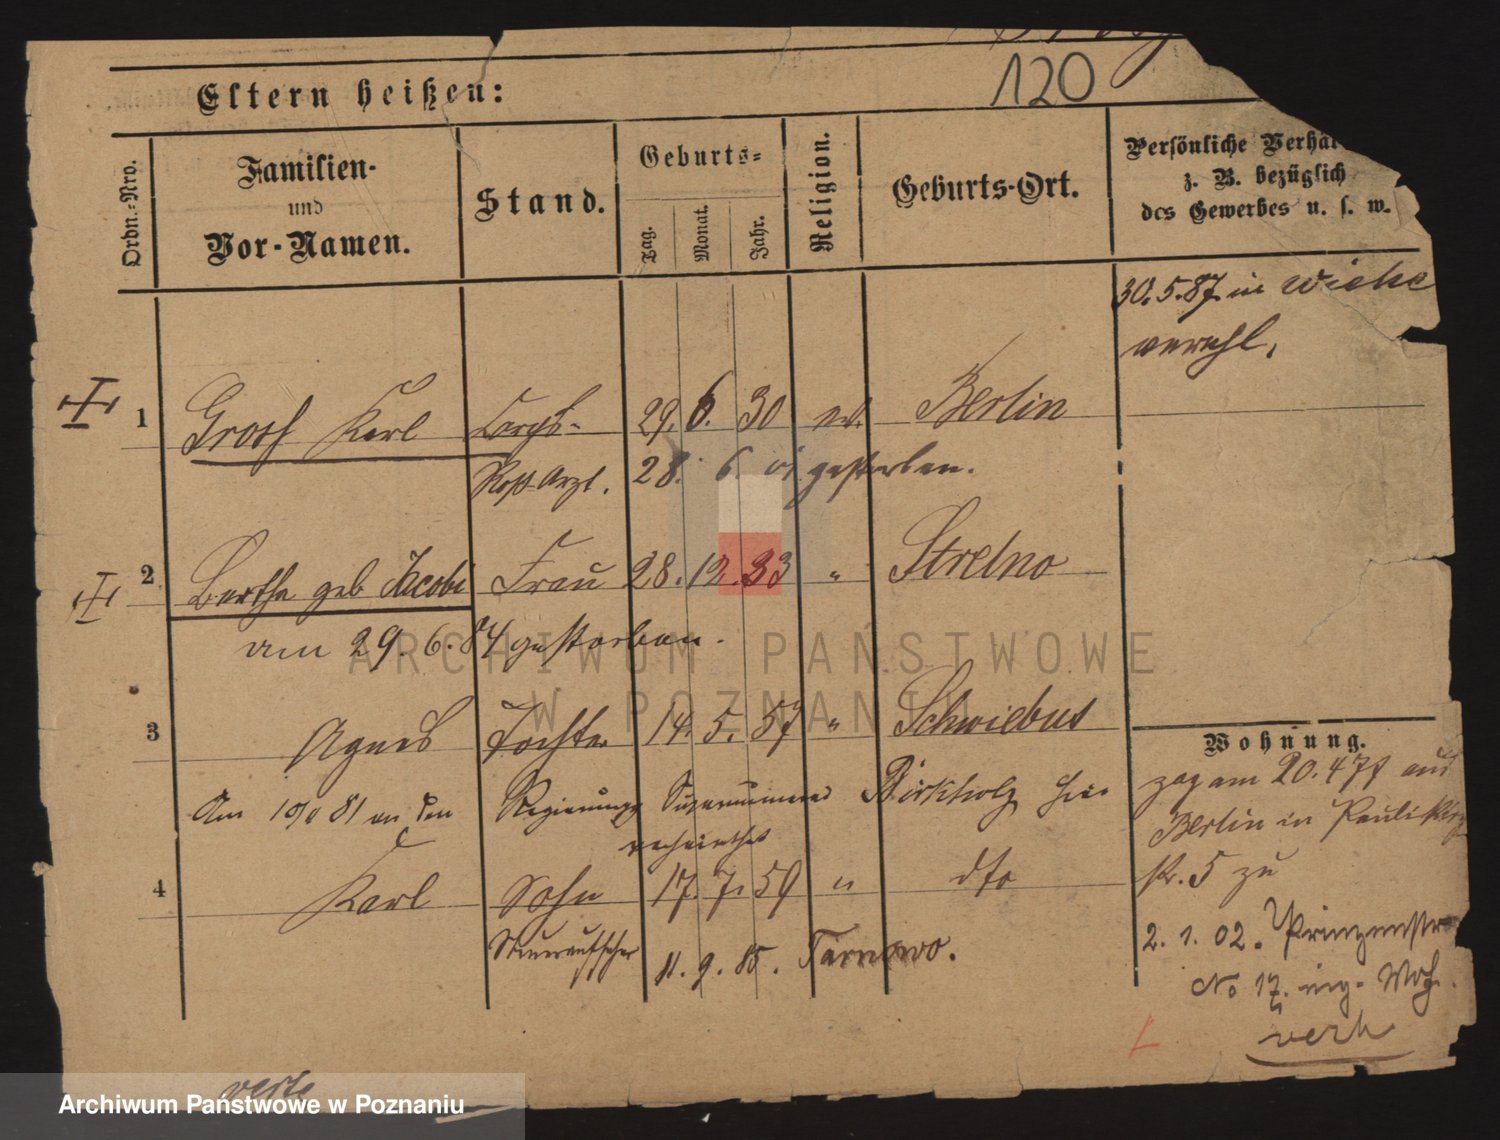 120
Eltern heißen:
Ordn.-Nro.
Familien-
und
Vor-Namen.
Stand.
Geburts-
Tag.
Monat.
Jahr.
Religion.
Geburts-Ort.
Persönliche Verhäl
z. B. bezüglich
des Gewerbes u. s. w.
30.5.87 in
verehl.
1 Grosh Karl Corps- 29. 6. 30 ev. Berlin
Roß-Arzt. 28. 6. 01 gestorben.
2 Bertha geb Jacobi Frau 28. 12. 33 " Strelno
am 29. 6. 84 gestorben.
3 Agnes Tochter 14. 5. 57 " Schwiebus
Wohnung.
Am 81 an den Regierungs Birkholz hier
verheirathet
zog am 20.4 77 aus
Berlin in Paulikirch
str. 5 zu
4 Karl Sohn 17. 7. 59 " dto
Steueraufseher 11. 9. 85. Tarnowo.
2. 1. 02. Prinzenstr
No 17.
verh
verte
ARCHIWUM PAŃSTWOWE
W POZNANIU
Archiwum Państwowe w Poznaniu